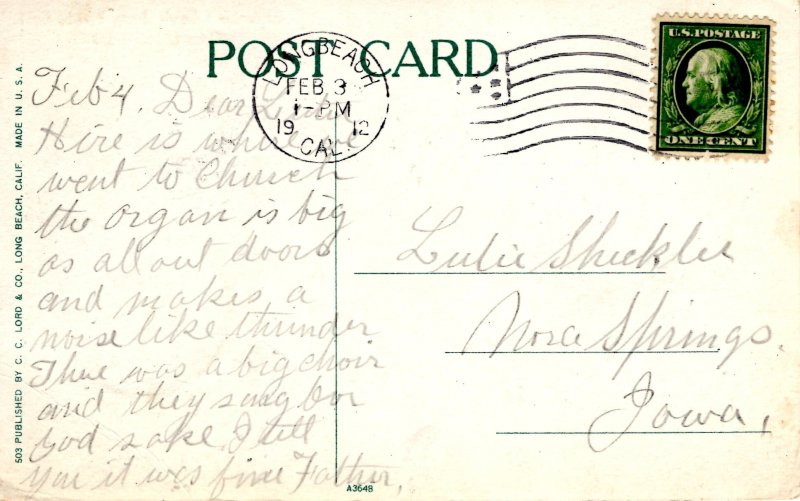 POST CARD
LONG BEACH
FEB 3
1-PM
19 12
CAL.
U.S. POSTAGE
ONE CENT
Feb 4. Dear
Here is where we
went to Church
the organ is big
as all out doors
and makes a
noise like thunder
There was a big choir
and they sang for
God sake I tell
you it was fine Father.
Lulie Sheckler
Nora Springs.
Iowa,
503 PUBLISHED BY C. C. LORD & CO., LONG BEACH, CALIF. MADE IN U. S. A.
A3648